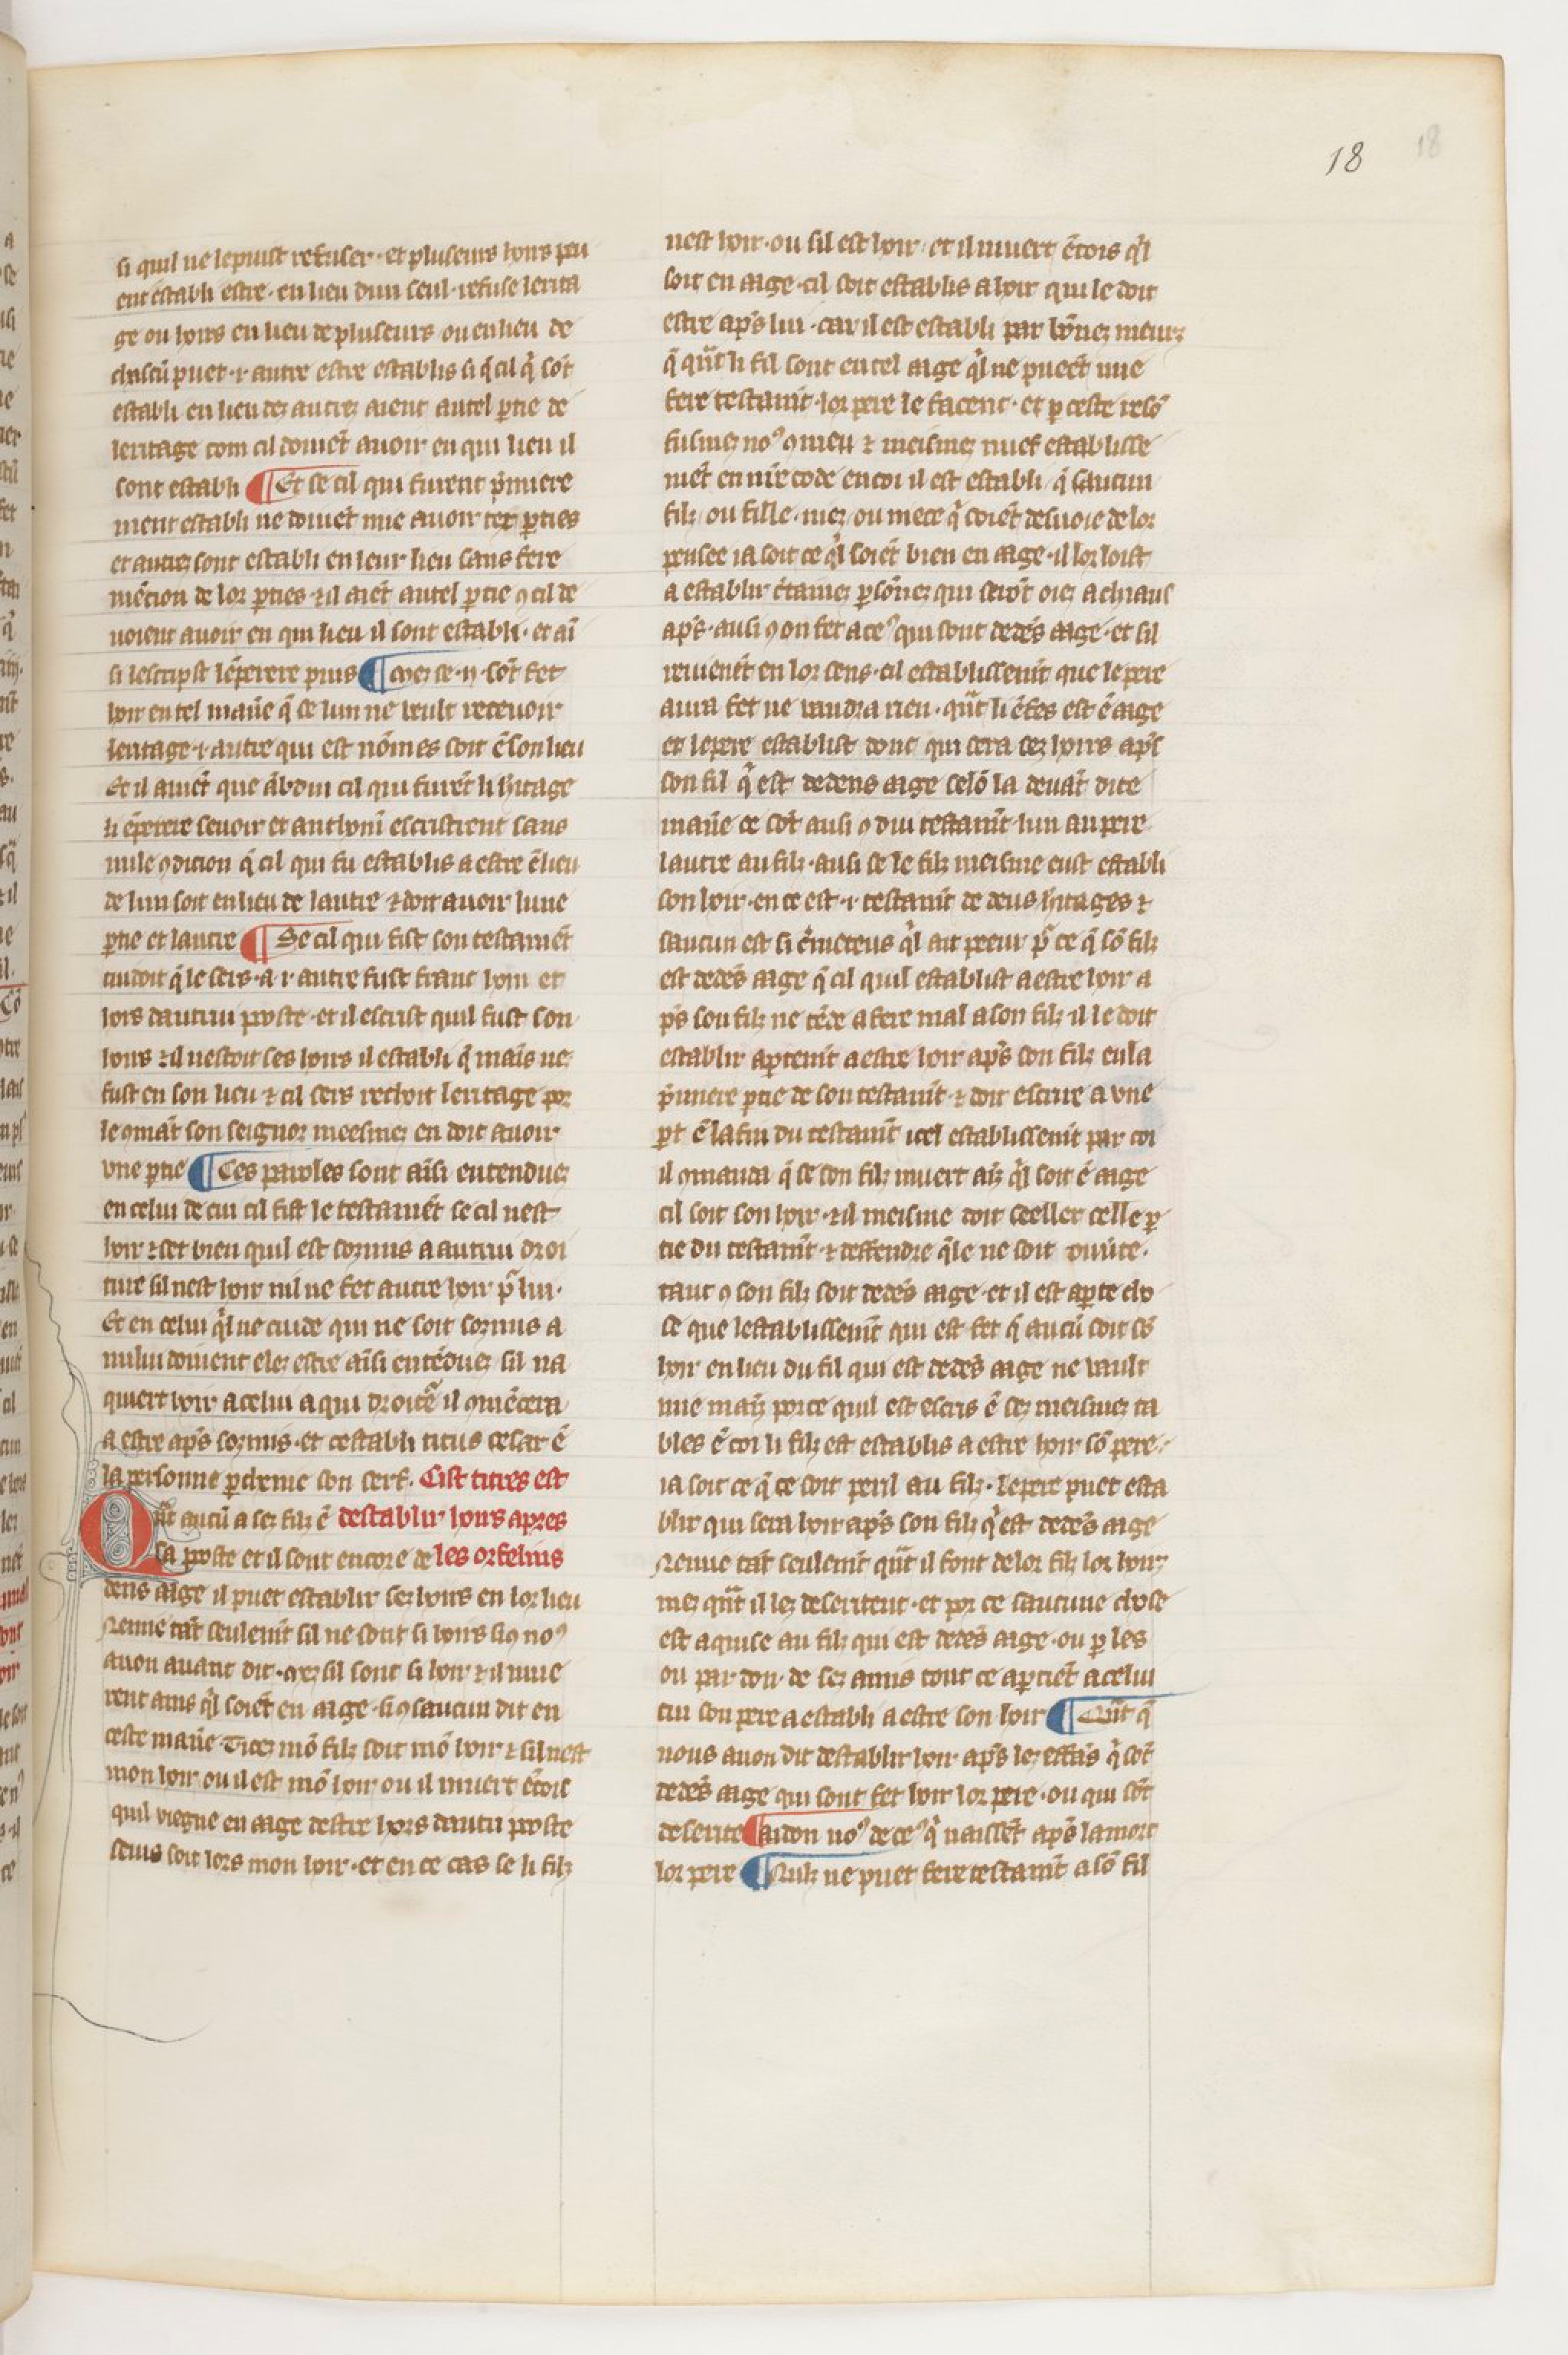 18
18
si quil ne le puist refuser · et pluseurs hoirs peu
ent establi estre · en lieu dun seul · refuse lerita
ge ou hoirs en lieu de pluseurs ou en lieu de
chascũ puet · i · autre estre establis si q̃ cil q̇ sõt
establi en lieu dez autrez aient autel ptie de
leritage com cil doiuẽt auoir en qui lieu il
sont establi ¶ Et se cil qui furent pͥmiere
ment establi ne doiuẽt mie auoir tex pties
et autrez sont establi en leur lieu sans fere
mẽcion de lor pties · ⁊ il aiẽt autel ptie ꝯ cil de
uoient auoir en qui lieu il sont establi · et aĩ
si lescripst lẽperere pius ¶ Mez se · ii · sõt fet
hoir en tel mañe q̃ se lun ne veult receuoir
leritage · i · autre qui est nõmes soit ẽ son lieu
Et il auiẽt que ãbdui cil qui furẽt li hitage
li ẽperere seuoir et anthoni escristrent sans
nule ꝯdicion q̃ cil qui fu establis a estre ẽ lieu
de lun soit en lieu de lautre ⁊ doit auoir lune
ptie et lautre ¶ Se cil qui fist son testamẽt
cuidoit q̃ le sers · a · i · autre fust franc hom et
hors dautrui poste · et il escrist quil fust son
hoirs ⁊ il nestoit ses hoirs il establi q̃ mais ne
fust en son lieu ⁊ cil sers rechoit leritage por
le ꝯmãt son seignor meesmez en doit auoir
vne ptie ¶ Ces paroles sont aĩsi entenduez
en celui de cui cil fist le testamẽt se cil nest
hoir ⁊ set bien quil est sozmis a autrui droi
ture sil nest hoir nil ne fet autre hoir pͬ lui ·
Et en celui q̇l ne cuide qui ne soit sozmis a
nului doiuent elez estre aĩsi entẽduez sil na
quiert hoir a celui a qui droitẽ il ꝯmẽcera
a estre apš sozmis · et cestabli titus cesar ẽ
la personne pdenie son serf · Cist titres est
Qãt aucũ a sez filz ẽ destablir hoirs apres
sa poste et il sont encore de les orfelins
dens aige il puet establir sez hoirs en lor lieu
Nenne tãt seulemt̃ sil ne sont si hoirs si ꝯ noꝰ
auon auant dit · mez sil sont si hoir ⁊ il mue
rent ains q̇l soiẽt en aige · si ꝯ saucun dit en
ceste mañe Ticez mõ filz soit mõ hoir ⁊ sil nest
mon hoir ou il est mõ hoir ou il muert ẽcois
quil viegne en aige destre hors dautri poste
seius soit lors mon hoir · et en ce cas se li filz
nest hoir · ou sil est hoir · et il muert ẽcois q̇l
soit en aige · cil soit establis a hoir qui le doit
estre apš lui · car il est establi par bõnez meurz
q̃ qũt li fil sont en tel aige q̇l ne pueẽt mie
fere testamt̃ · lor pere le facent · et p ceste resõ
fusmez noꝰ ꝯmeu ⁊ meismez nuef establisse
mẽt en nr̃e code en coi il est establi · q̃ saucun
filz / ou fille · niez / ou niece q̇ soiẽt desuoie de lor
pensee ia soit ce q̇l soiẽt bien en aige · il lor loist
a establir ctainez psõnez qui serõt oirz a chiaus
apš · ausi ꝯ on fet a ceꝰ qui sont dedẽs aige · et sil
reuienẽt en lor sens · cil establissemt̃ que le pere
aura fet ne vaudra rien · qũt li ẽfes est ẽ aige
et le pere establist donc qui sera sez hoirs apš
son fil q̇ est dedens aige selõ la deuãt dite
mañe ce sõt ausi ꝯ dui testamt̃ · lun au pere
lautre au filz · ausi se le filz meisme eust establi
son hoir · en ce est · i · testamt̃ de deus hitages ⁊
saucun est si cͥmeteus q̇l ait peeur pͬ ce q̃ sõ filz
est dedẽs aige q̃ cil quil establist a estre hoir a
pš son filz ne tẽde a fere mal a son filz · il le doit
establir aptemt̃ a estre hoir apš son filz en la
pͥmiere ptie de son testamt̃ · ⁊ doit escrire a vne
pt ẽ la fin du testamt̃ icel establissemt̃ par coi
il ꝯmanda q̃ se son filz muert aĩz q̇l soit ẽ aige
cil soit son hoir · ⁊ il meisme doit seeller celle p
tie du testamt̃ · ⁊ deffendre q̃le ne soit ouũte ·
tant ꝯ son filz soit dedẽs aige · et il est apte cho
se que lestablissemt̃ qui est fet q̃ aucũ soit sõ
hoir en lieu du fil qui est dedẽs aige ne vault
mie maĩz por ce quil est escris ẽ sez meismez ta
bles ẽ coi li filz est establis a estre hoir sõ pere ·
ia soit ce q̃ ce soit peril au filz · le pere puet esta
blir qui sera hoir apš son filz q̇ est dedẽs aige
Nenne tãt seulemt̃ qũt il font de lor filz lor hoirz
mez qũt il lez deseritent · et por ce saucune chose
est aquise au filz qui est dedẽs aige · ou p les
ou par don · de sez amis tout ce aptiẽt a celui
cui son pere a establi a estre son hoir ¶ Qũt q̃
nous auon dit destablir hoir apš lez effãs q̇ sõt
dedẽs aige qui sont fet hoir lor pere · ou qui sõt
deserite ¶ aidon noꝰ de ceꝰ q̇ naissẽt apš la mort
lor pere ¶ Nulz ne puet fere testamt̃ a sõ fil